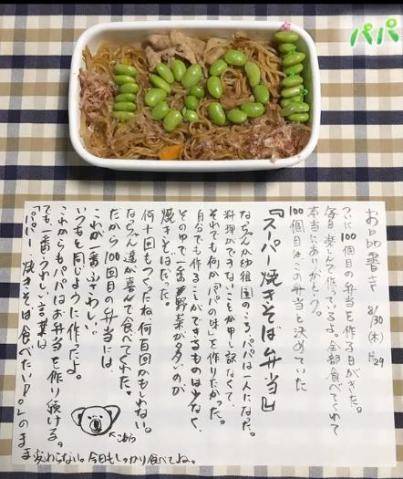 パパ
お品書き 8/30(木) No.29
ついに100個目の弁当を作る日がきた。
毎日楽しんで作っているよ。全部食べてくれて
本当にありがとう。
100個目はこの弁当と決めていた
『スーパー焼きそば弁当』
なっちゃんが幼稚園のころ、パパは一人になった。
料理ができないことが申し訳なくて、
それでも何か「パパの味」を作りたかった。
自分でも作ることができるものは少なく、
その中で一番野菜が多いのが
焼きそばだった。
何十回もつくったね。何百回かもしれない。
なっちゃん達が喜んで食べてくれた。
だから100回目のお弁当には
これが一番ふさわしい。
いつもと同じように作ったよ。
これからもパパはお弁当を作り続ける。
でも、一番うれしい言葉は
「パパー 焼きそば食べたい!」のまま
変わらない。今日もしっかり食べてね。